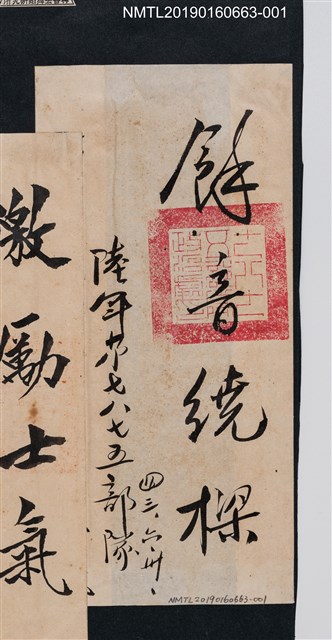 NMTL20190160663-001
餘音繞樑
陸軍第七八七五部隊
四三、六、卅、
激勵士氣
NMTL20190160663-001